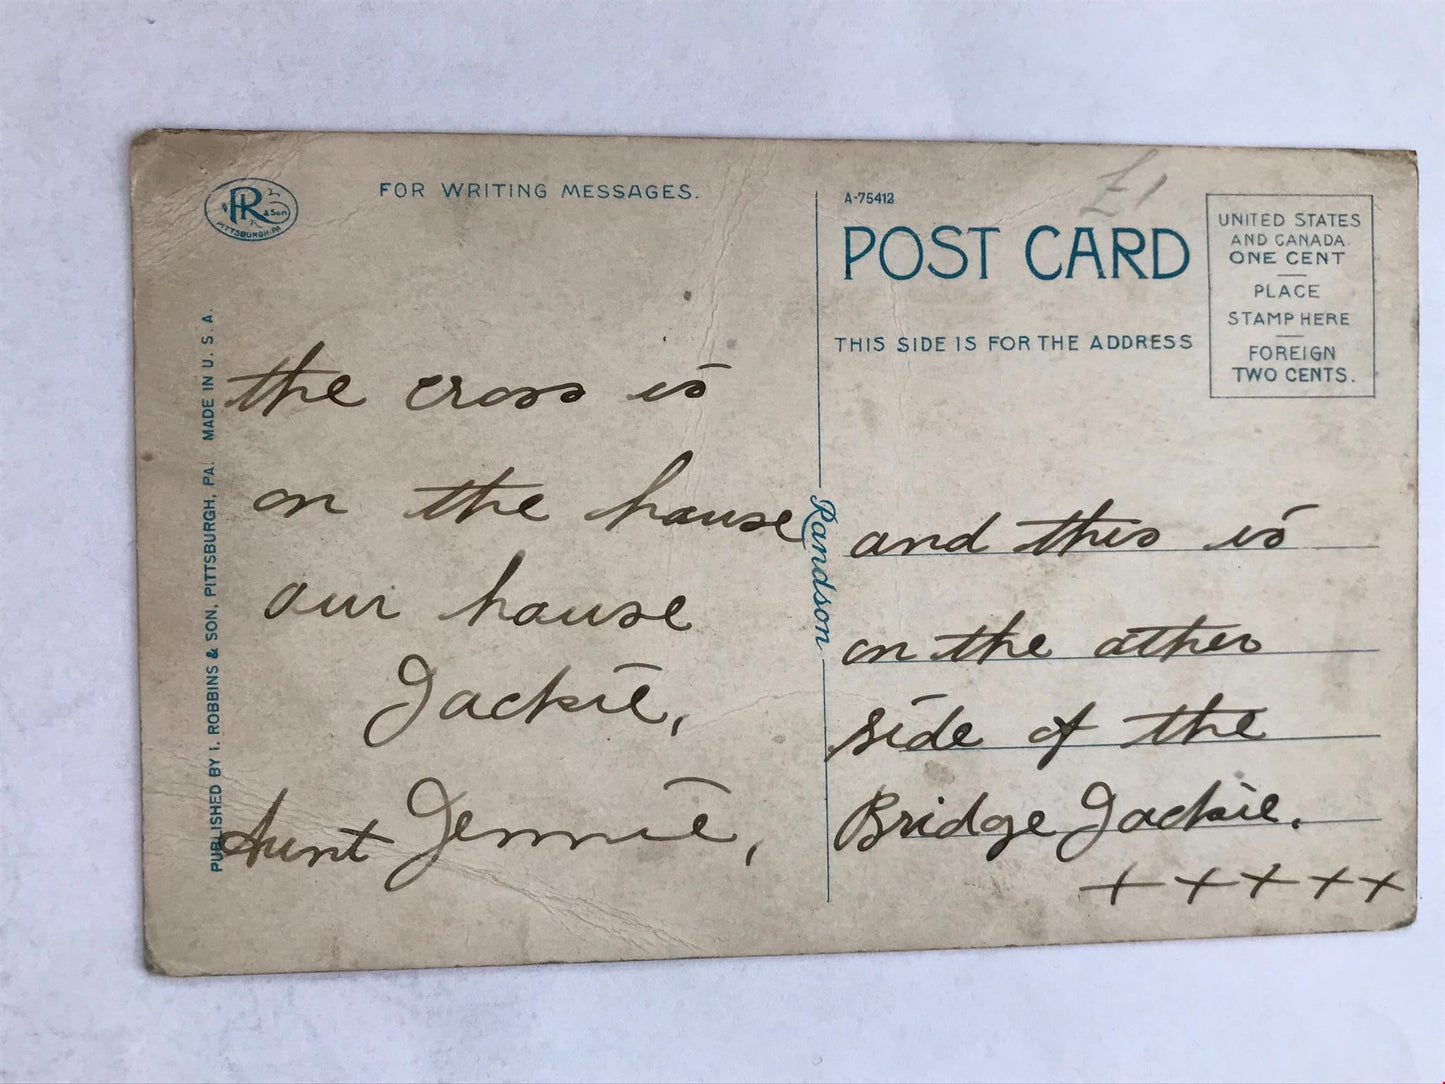 FOR WRITING MESSAGES.
R & Son
PITTSBURGH. PA.
PUBLISHED BY I. ROBBINS & SON, PITTSBURGH, PA. MADE IN U. S. A.
the cross is
on the house
our house
Jackie,
Aunt Jennie,
Randson
A-75412
£1
POST CARD
THIS SIDE IS FOR THE ADDRESS
UNITED STATES
AND CANADA
ONE CENT
PLACE
STAMP HERE
FOREIGN
TWO CENTS.
and this is
on the other
side of the
Bridge Jackie.
+ + + + +